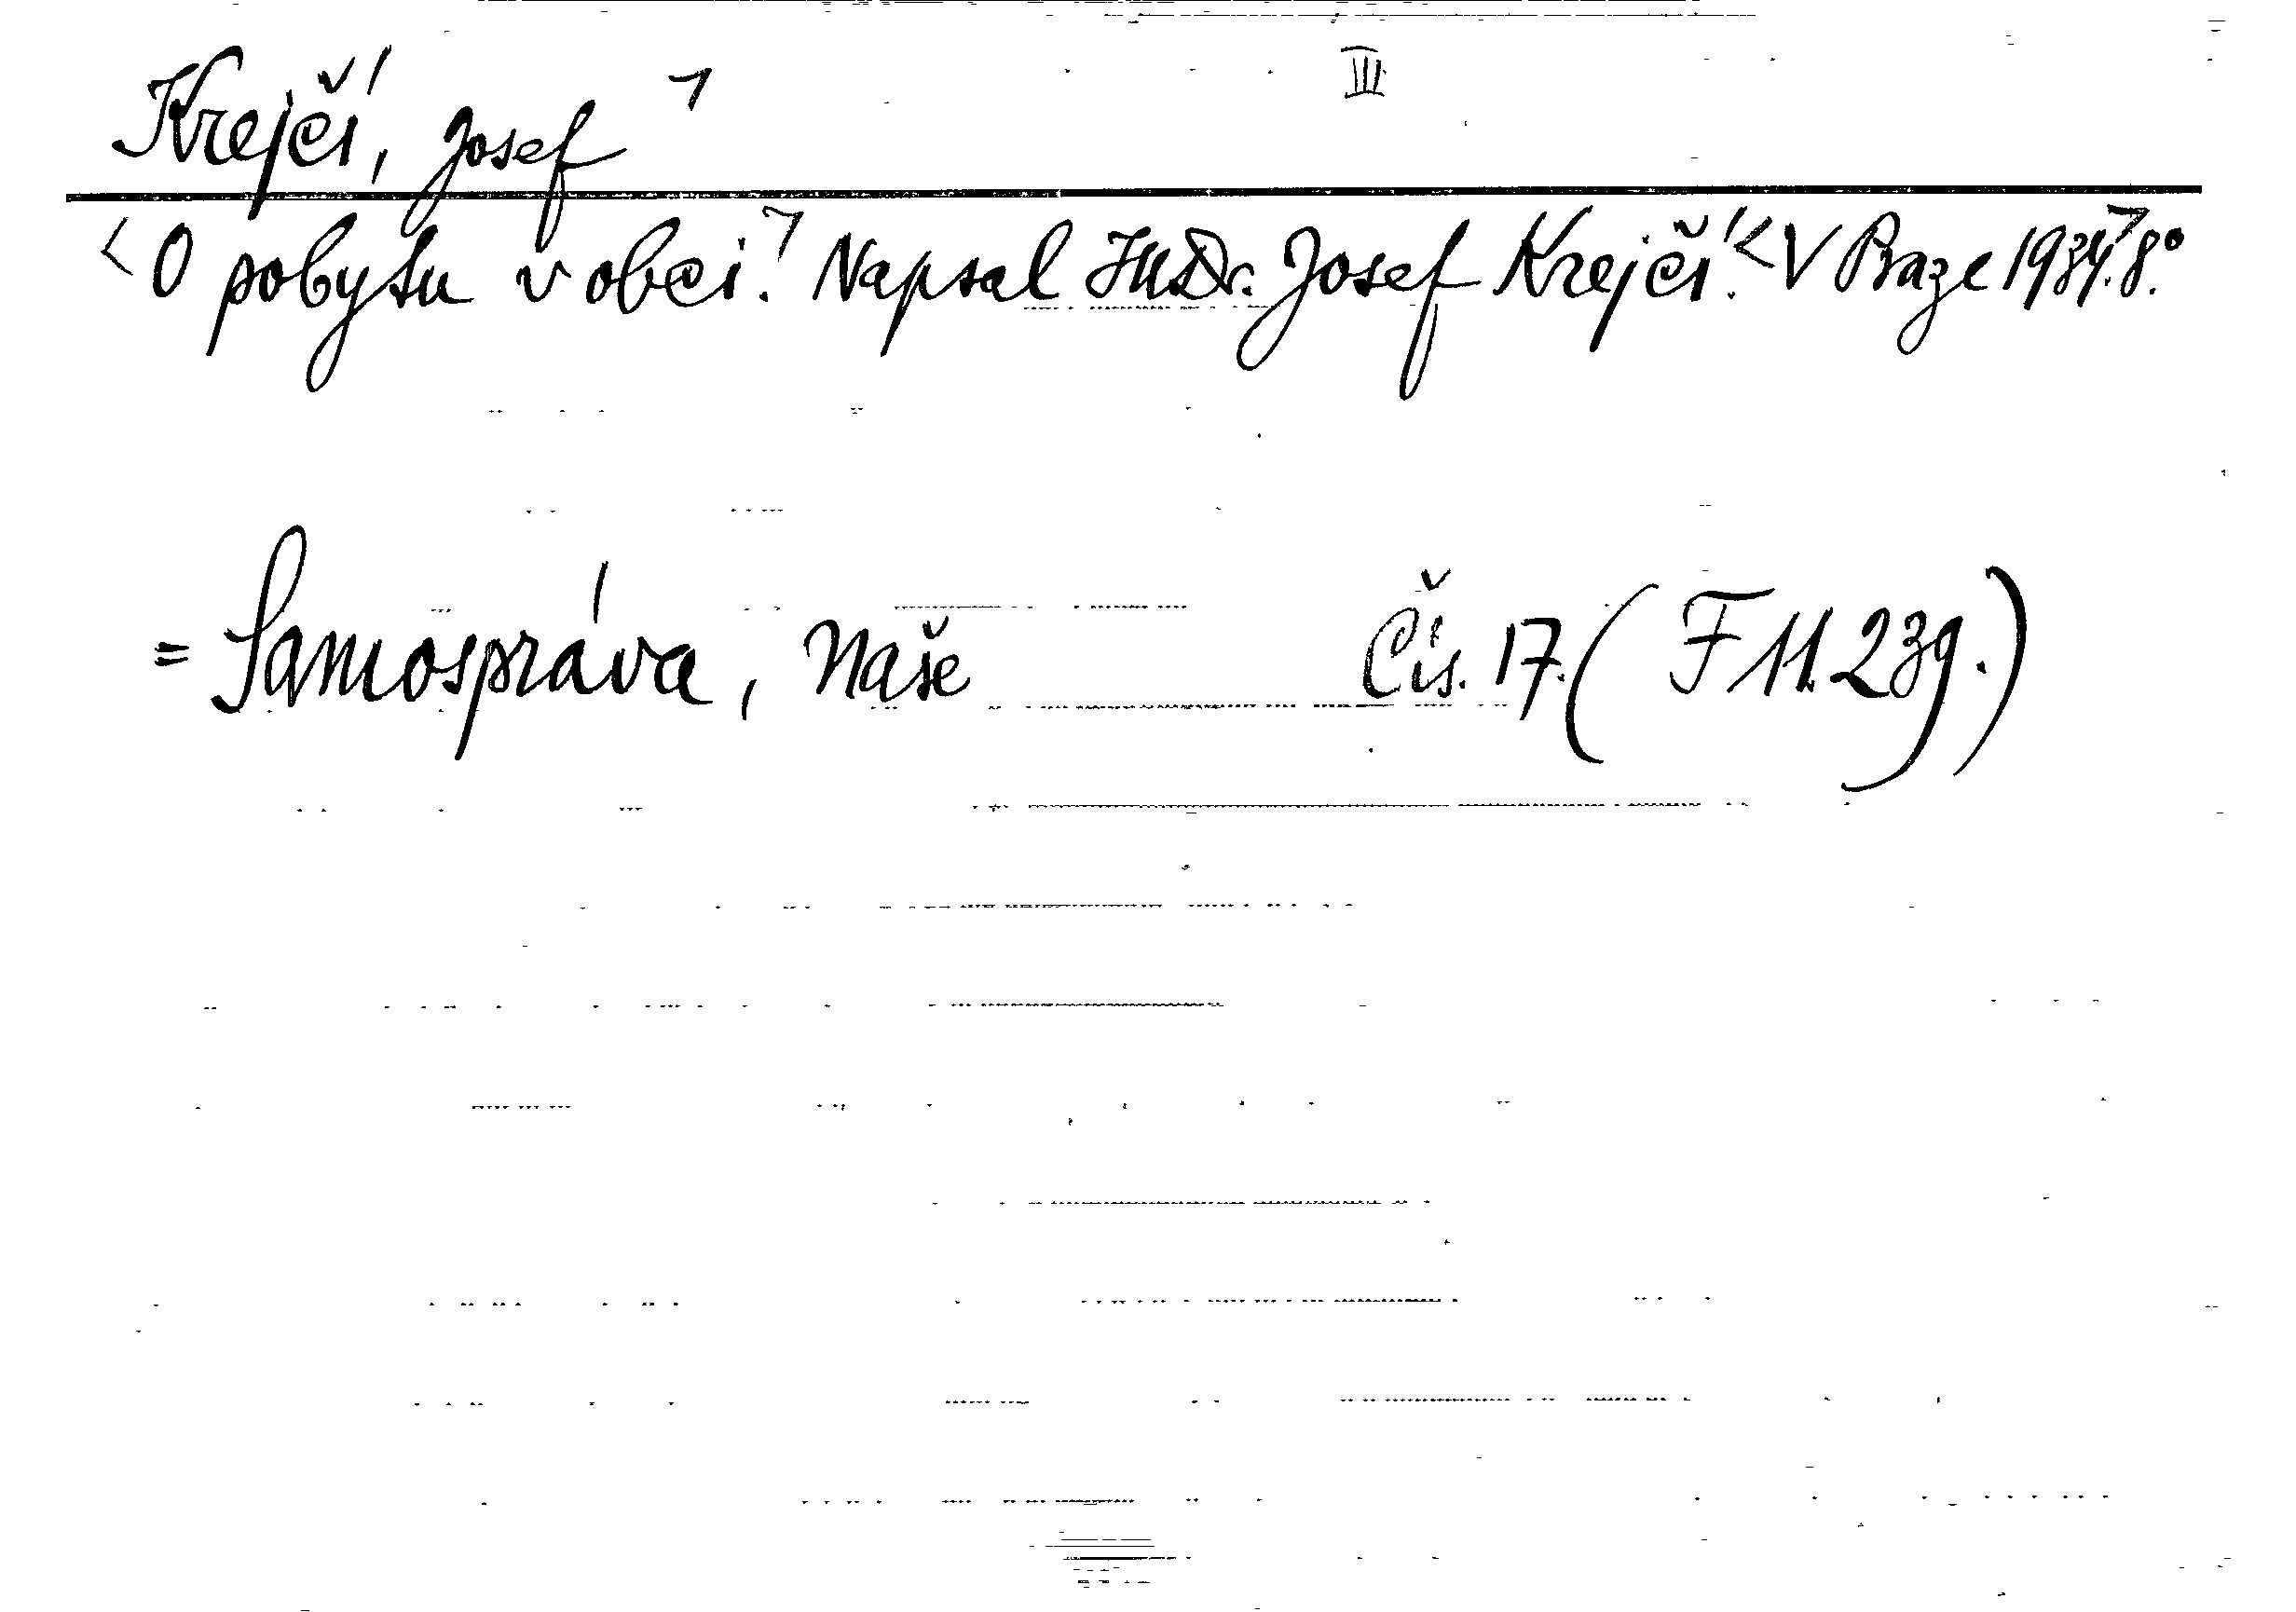 Krejčí, Josef ⌝ III
<O pobytu v obci.⌝ Napsal JUDr. Josef Krejčí.< V Praze 1934.⌝ 8.°
= Samospráva, Naše Čís. 17. (F 11.239.)